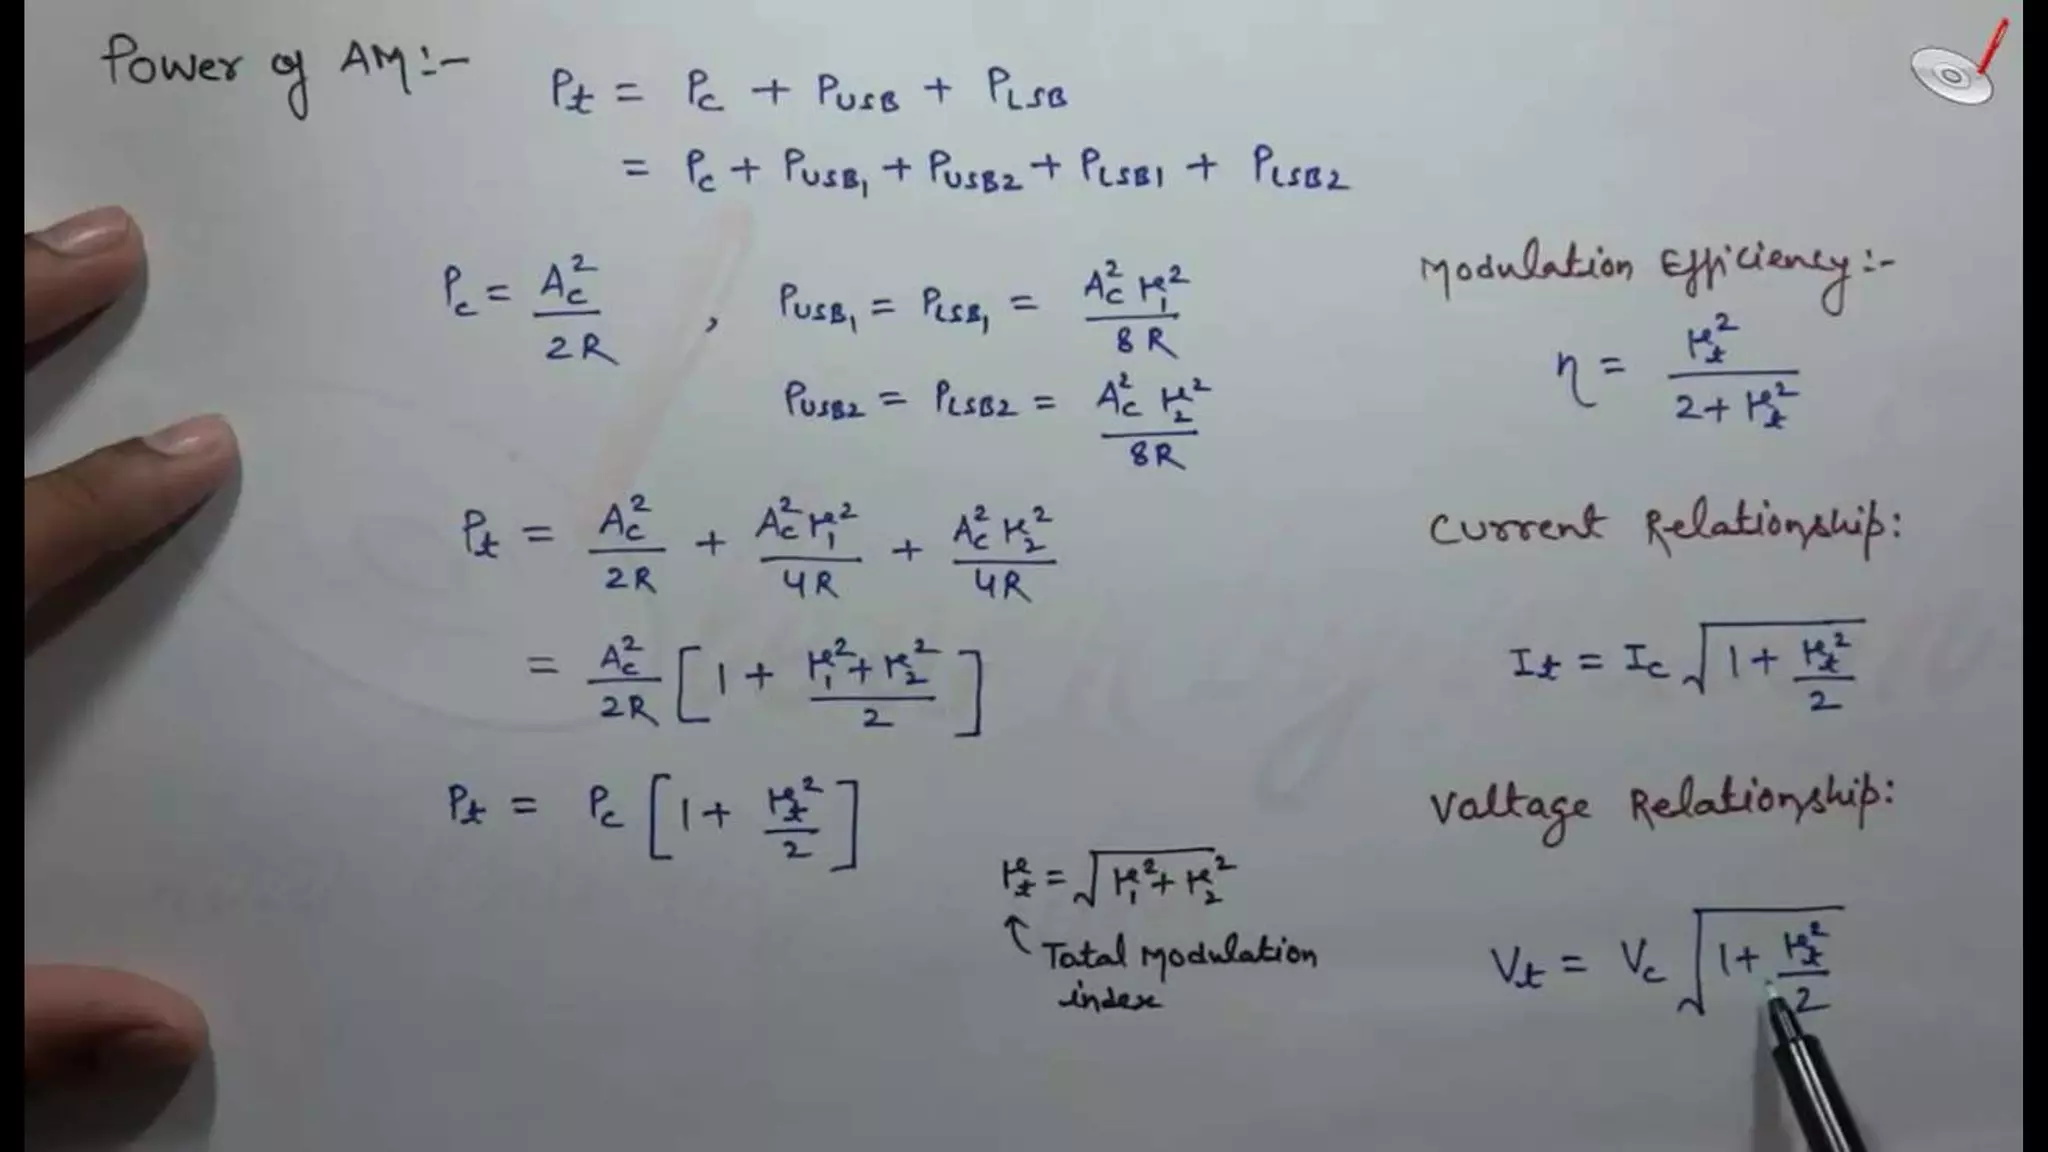 Power of AM:-
Pt = Pc + PUSB + PLSB
= Pc + PUSB1 + PUSB2 + PLSB1 + PLSB2
Pc = Ac²/2R , PUSB1 = PLSB1 = Ac² μ1²/8R
PUSB2 = PLSB2 = Ac² μ2²/8R
Pt = Ac²/2R + Ac² μ1²/4R + Ac² μ2²/4R
= Ac²/2R [1 + (μ1² + μ2²)/2]
Pt = Pc [1 + μt²/2]
μt = √(μ1² + μ2²)
↑ Total Modulation
index
Modulation Efficiency:-
η = μt²/(2 + μt²)
Current Relationship:
It = Ic √(1 + μt²/2)
Voltage Relationship:
Vt = Vc √(1 + μt²/2)